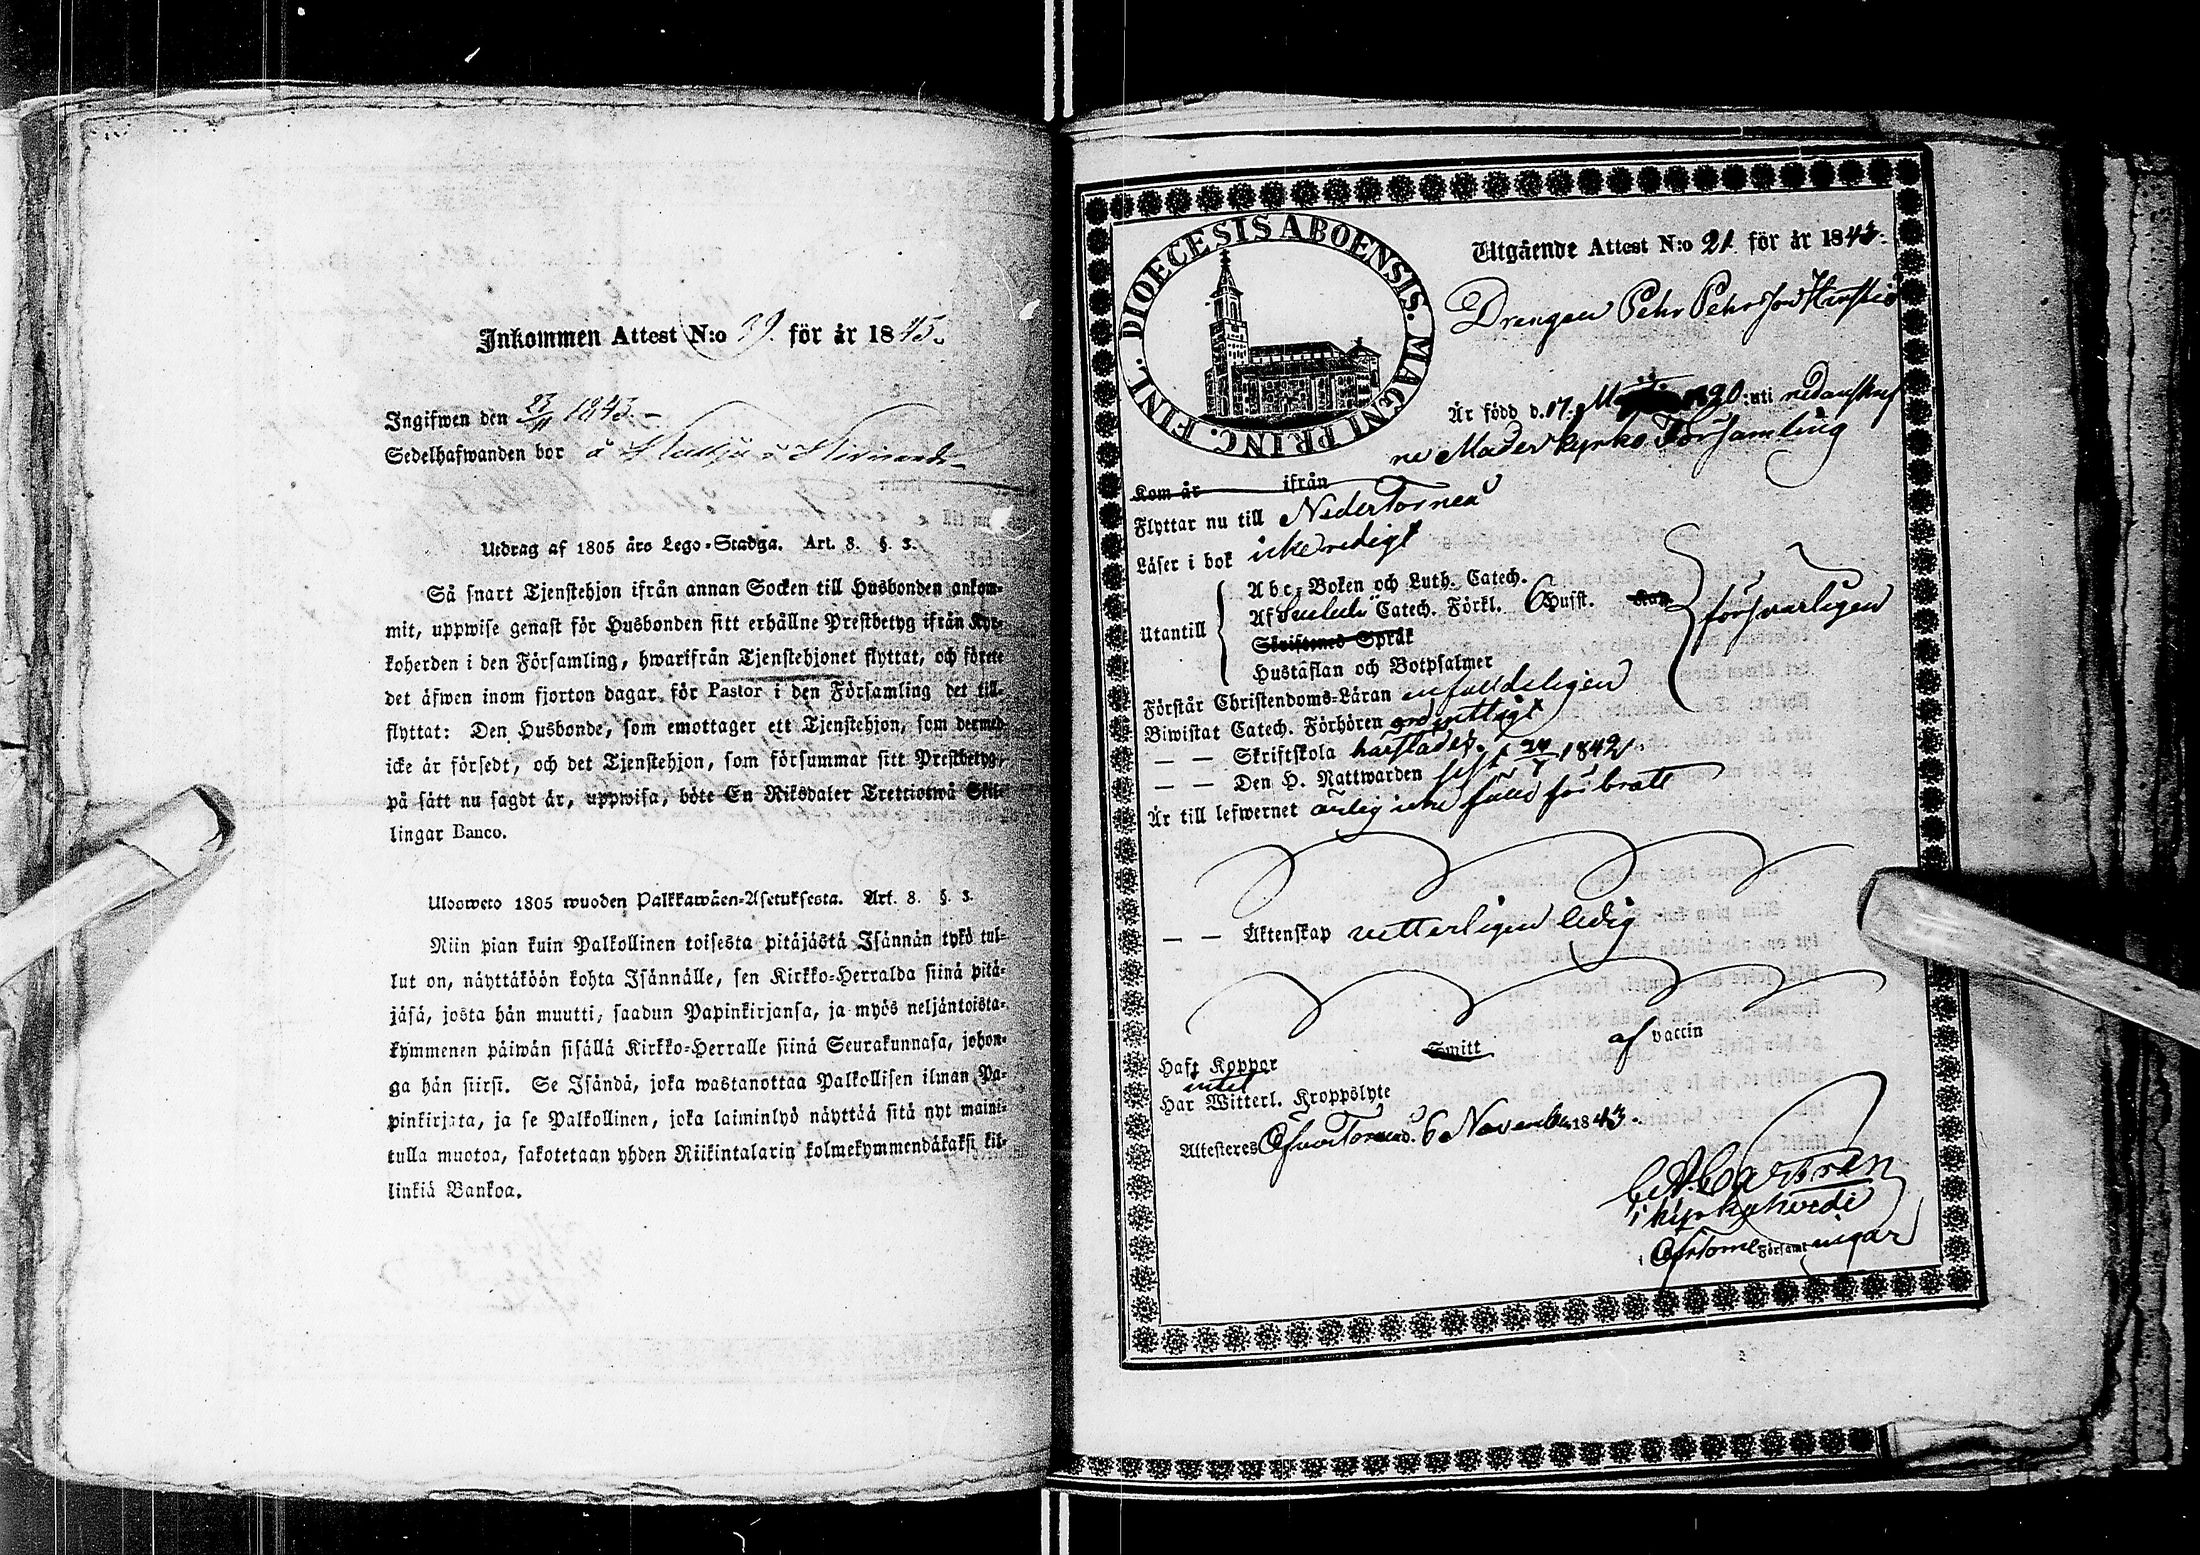 Inkommen Attest N:o 39. för år 1845.
Ingifwen den 23/11 1843.
Sedelhafwanden bor å
Utdrag af 1805 års Lego-Stadga. Art. 8. §. 3.
Så snart Tjenstehjon ifrån annan Socken till Husbonden ankom-
mit, uppwise genast för Husbonden sitt erhållne Prestbetyg ifrån Kyr-
koherden i den Församling, hwarifrån Tjenstehjonet flyttat, och förete
det äfwen inom fjorton dagar för Pastor i den Församling det till-
flyttat: Den Husbonde, som emottager ett Tjenstehjon, som dermed
icke är försedt, och det Tjenstehjon, som försummar sitt Prestbetyg,
på sätt nu sagdt är, uppwisa, böte En Riksdaler Trettiotwå Skil-
lingar Banco.
Ulosweto 1805 wuoden Palkkawäen-Asetuksesta. Art. 8. §. 3.
Niin pian kuin Palkollinen toisesta pitäjästä Isännän tykö tul-
lut on, näyttäköön kohta Isännälle, sen Kirkko-Herralda siinä pitä-
jäsä, josta hän muutti, saadun Papinkirjansa, ja myös neljäntoista-
kymmenen päiwän sisällä Kirkko-Herralle siinä Seurakunnasa, johon-
ga hän siirsi. Se Isändä, joka wastanottaa Palkollisen ilman Pa-
pinkirjata, ja se Palkollinen, joka laiminlyö näyttää sitä nyt maini-
tulla muotoa, sakotetaan yhden Riikintalarin kolmekymmendäkaksi kil-
linkiä Bankoa.
DIOECESIS ABOENSIS. MAGNI PRINC. FINL.
Utgående Attest N:o 21 för år 1843.
Drengen Pehr Pehrsson
Är född d. 17 1820 uti nedanskrif
ne Moderkyrko Församling
Kom år ifrån
Flyttar nu till NederTorneå
Läser i bok icke redigt
Utantill
Abc-Boken och Luth. Catech.
Af Catech. Förkl. 6 Husst.
Skriftenes Språk
Hustaflan och Botpsalmer
försvarligen
Förstår Christendoms-Läran enfaldeligen
Biwistat Catech. Förhören ordentligt
— — Skriftskola
— — Den H. Nattwarden sist 24/7 1842
Är till lefwernet ärlig icke för brott
— — Äktenskap vetterligen ledig
Haft Koppor Smitt af vaccin
intet
Har Witterl. Kroppslyte
Attesteres ÖfverTorneå d. 6 November 1843.
C. A. Castrén
kyrkoherde
i ÖfvrTorne Församlingar